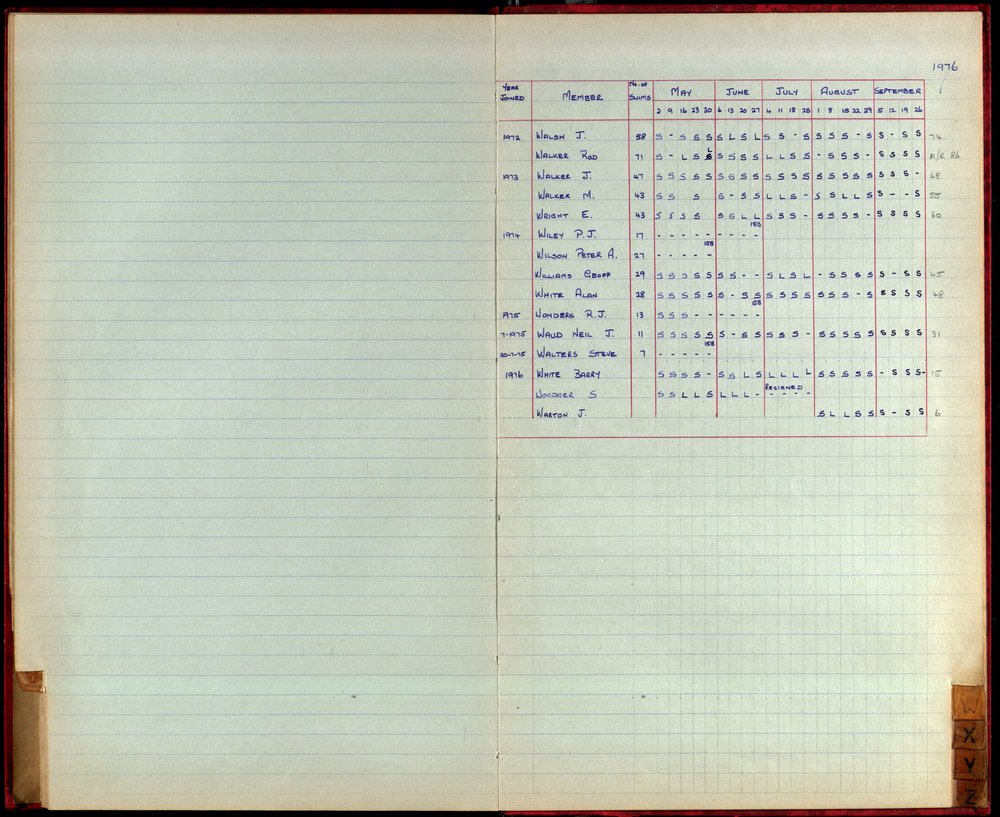 1976
YEAR JOINED MEMBER No. OF SWIMS MAY JUNE JULY AUGUST SEPTEMBER
2 9 16 23 30 6 13 20 27 4 11 18 25 1 8 15 22 29 5 12 19 26
1972 WALSH J. 58 S - S S S S L S L S S - S S S S - S S - S S 74
L
WALKER ROD 71 S - L S S S S S S L L S S - S S S - S S S S A/R 86
1973 WALKER J. 47 S S S S S S S S S S S S S S S S S S S S S - 68
WALKER M. 43 S S S S - S S L L S - S S L L S S - - S 55
WRIGHT E. 43 S S S S S S L L S S S - S S S S - S S S S 60
15B
1974 WILEY P.J. 17 - - - - - - - - -
15B
WILSON PETER A. 27 - - - - -
WILLIAMS GEOFF 29 S S S S S S S - - S L S L - S S S S S - S S 45
WHITE ALAN 28 S S S S S S - S S S S S S S S S - S S S S S 48
15B
1975 WONDERS R.J. 13 S S S - - - - - -
7-1975 WAUD NEIL J. 11 S S S S S S - S S S S S - S S S S S S S S S 31
15B
20-7-75 WALTERS STEVE 7 - - - - -
1976 WHITE BARRY S S S S - S S L S L L L L S S S S S - S S S - 15
RESIGNED
WOODGER S S S L L S L L L - - - - -
WARTON J. S L L S S S - S S 6
W
X
Y
Z